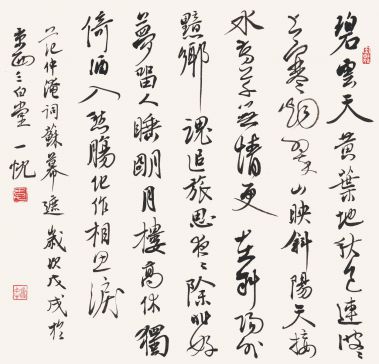 碧雲天黃葉地秋色連波々
上寒煙翠山映斜陽天接
水芳草無情更在斜陽外
黯鄉魂追旅思夜々除非好
夢留人睡明月樓高休獨
倚酒入愁腸化作相思淚
范仲淹詞蘇幕遮歲次戊戌於
京西三白堂一